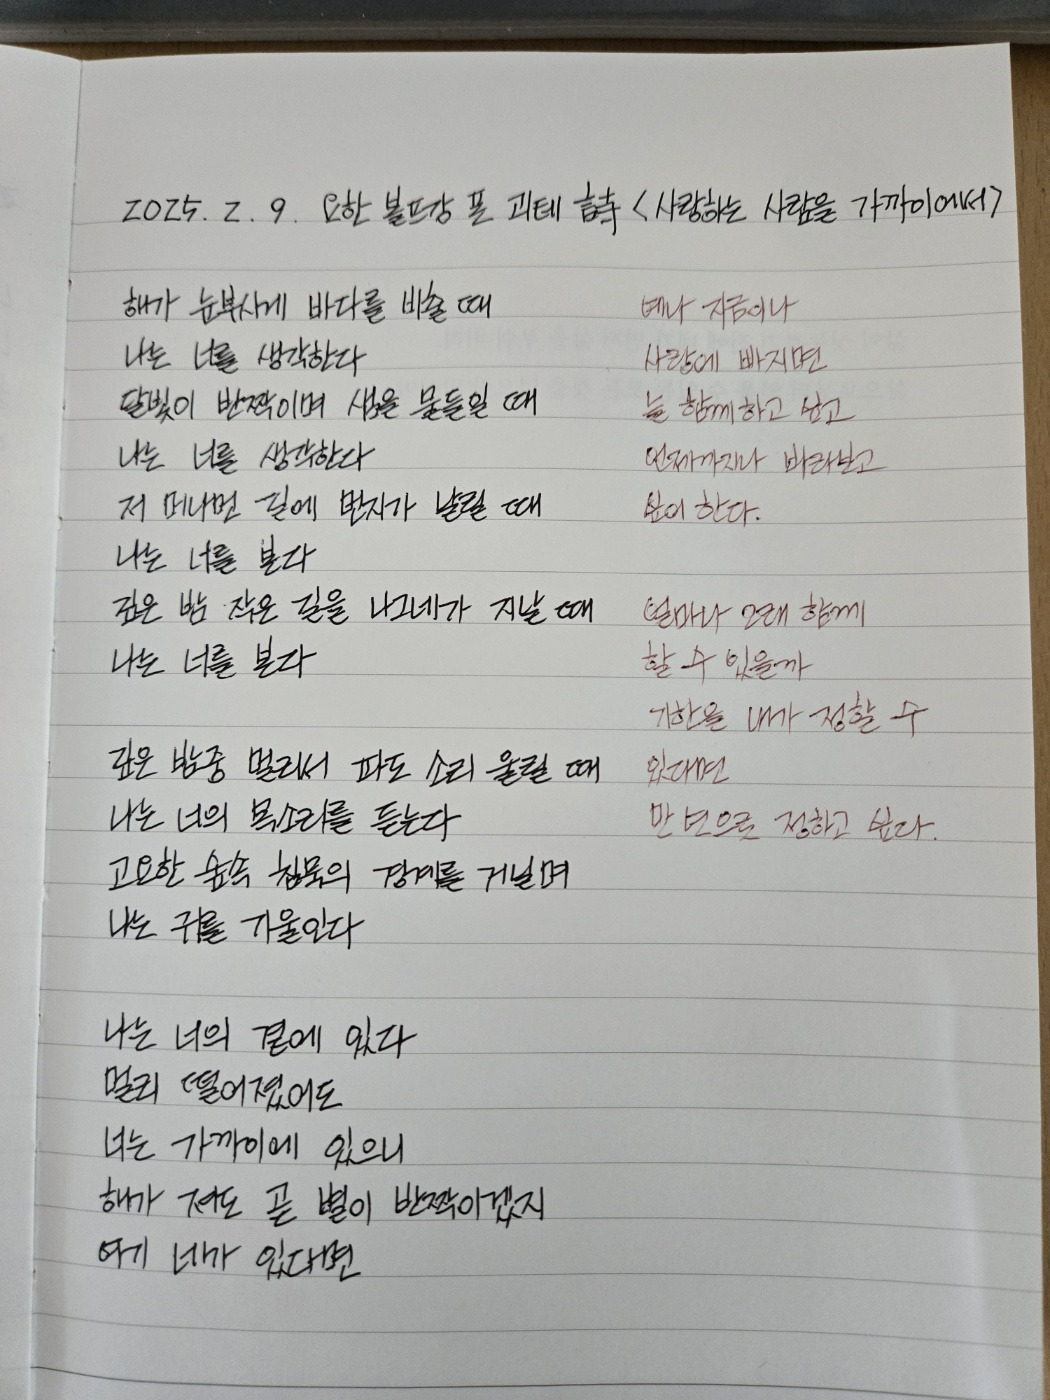 2025. 2. 9. 요한 볼프강 폰 괴테 詩 <사랑하는 사람을 가까이에서>
해가 눈부시게 바다를 비출 때
나는 너를 생각한다
달빛이 반짝이며 샘을 물들일 때
나는 너를 생각한다
저 머나먼 길에 먼지가 날릴 때
나는 너를 본다
깊은 밤 작은 길을 나그네가 지날 때
나는 너를 본다
깊은 밤중 멀리서 파도 소리 울릴 때
나는 너의 목소리를 듣는다
고요한 숲속 침묵의 경계를 거닐며
나는 귀를 기울인다
나는 너의 곁에 있다
멀리 떨어졌어도
너는 가까이에 있으니
해가 져도 곧 별이 반짝이겠지
여기 네가 있다면
예나 지금이나
사랑에 빠지면
늘 함께하고 싶고
언제까지나 바라보고
싶어 한다.
얼마나 오래 함께
할 수 있을까
기한을 내가 정할 수
있다면
만 년으로 정하고 싶다.